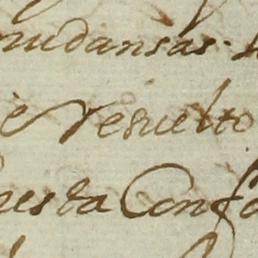 mudansas
e Resuelto
nesta Conf